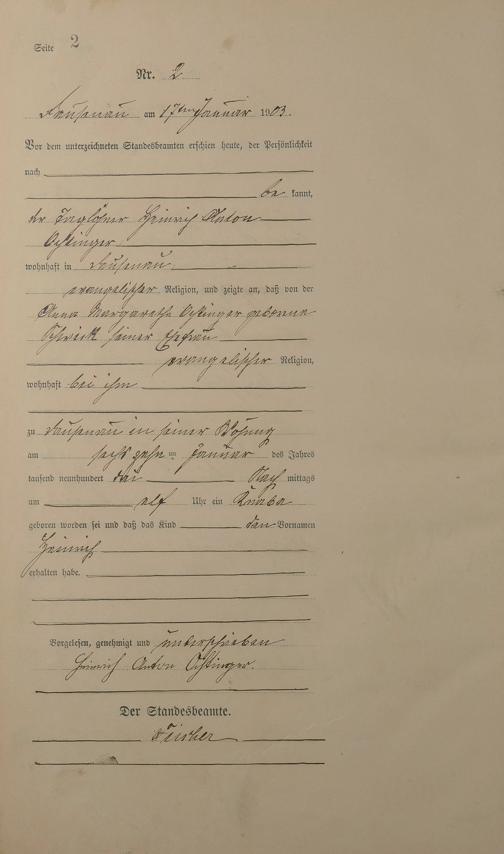 Seite 2
Nr. 2
Dausenau am 17ten Januar 1903.
Vor dem unterzeichneten Standesbeamten erschien heute, der Persönlichkeit
nach
be kannt,
der Taglöhner Heinrich Anton
Oestinger
wohnhaft in Dausenau
evangelischer Religion, und zeigte an, daß von der
Anna Margarethe Oestinger geborene
seiner Ehefrau
evangelischer Religion,
wohnhaft bei ihm
zu Dausenau in seiner Wohnung
am sechszehn ten Januar des Jahres
tausend neunhundert drei Nach mittags
um elf Uhr ein Knabe
geboren worden sei und daß das Kind den Vornamen
Heinrich
erhalten habe.
Vorgelesen, genehmigt und unterschrieben
Heinrich Anton Oestinger.
Der Standesbeamte.